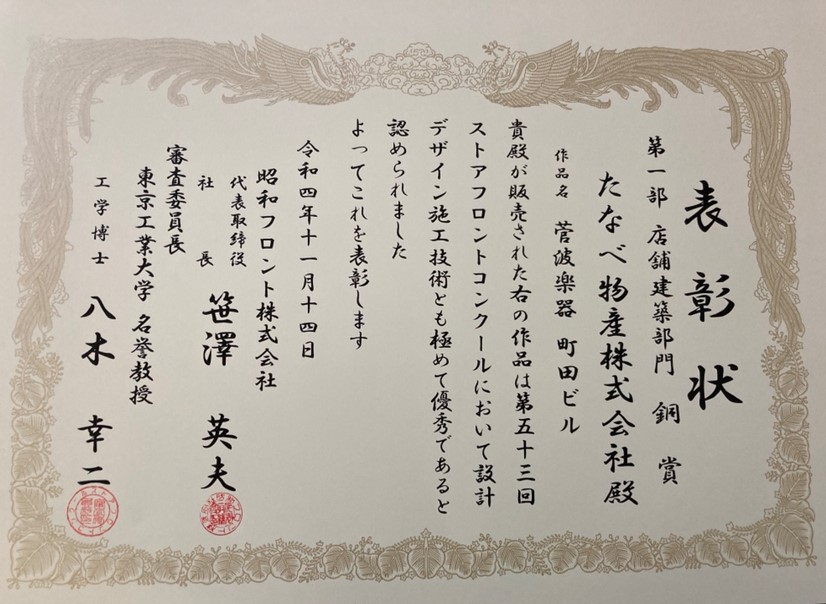 表彰状
第一部 店舗建築部門 銅賞
たなべ物産株式会社殿
作品名 菅波楽器 町田ビル
貴殿が販売された右の作品は第五十三回
ストアフロントコンクールにおいて設計
デザイン施工技術とも極めて優秀であると
認められました
よってこれを表彰します
令和四年十一月十四日
昭和フロント株式会社
代表取締役
社長 笹澤英夫
審査委員長
東京工業大学 名誉教授
工学博士 八木幸二